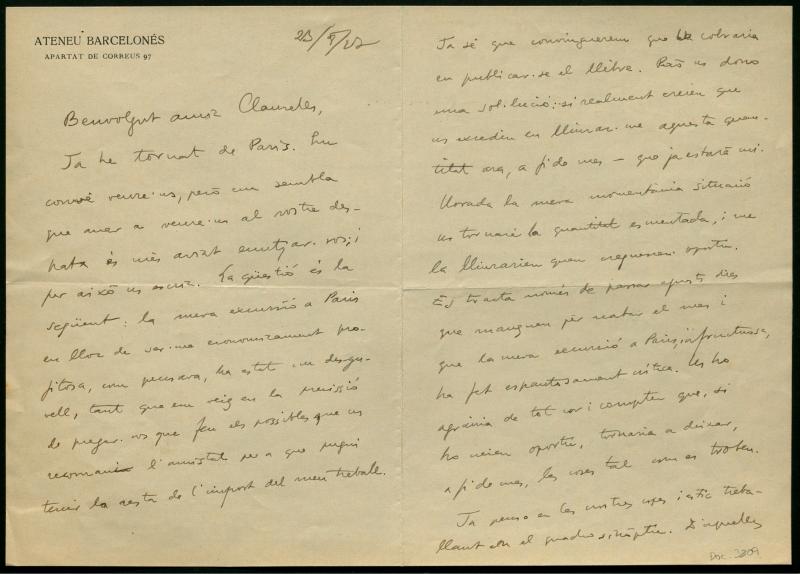 ATENEU BARCELONÉS
APARTAT DE CORREUS 97
23/9/27
Benvolgut amic Claudeles,
Ja he tornat de París. Em
convé veure-us, però em sembla
que anar a veure-us al vostre des-
patx és més aviat enutjar-vos; i
per això us escric. La qüestió és la
següent: la meva excursió a París
en lloc de ser-me econòmicament pro-
fitosa, com pensava, ha estat un desga-
vell, tant que em veig en la precissió
de pregar-vos que feu els possibles que us
recomani l'amistat per a que pugui
tenir la resta de l'import del meu treball.
Ja sé que convinguerem que cobraria
en publicar-se el llibre. Però us dono
una sol·lució: si realment creieu que
us excediu en lliurar-me aquesta quan-
titat ara, a fi de mes – que ja estarà mi-
llorada la meva momentània situació
us tornaré la quantitat esmentada, i me
la lliurarieu quan creguessiu oportú.
Es tracta només de passar aquests dies
que manquen per acabar el mes i
que la meva excursió a París, infructuosa,
ha fet espantosament crítica. Us ho
agrairia de tot cor i compteu que, si
ho veieu oportú, tornaria a deixar,
a fi de mes, les coses tal com es troben.
Ja penso en les nostres coses i estic treba-
llant en el quadro sinòptic. D'aquelles
Doc. 3309